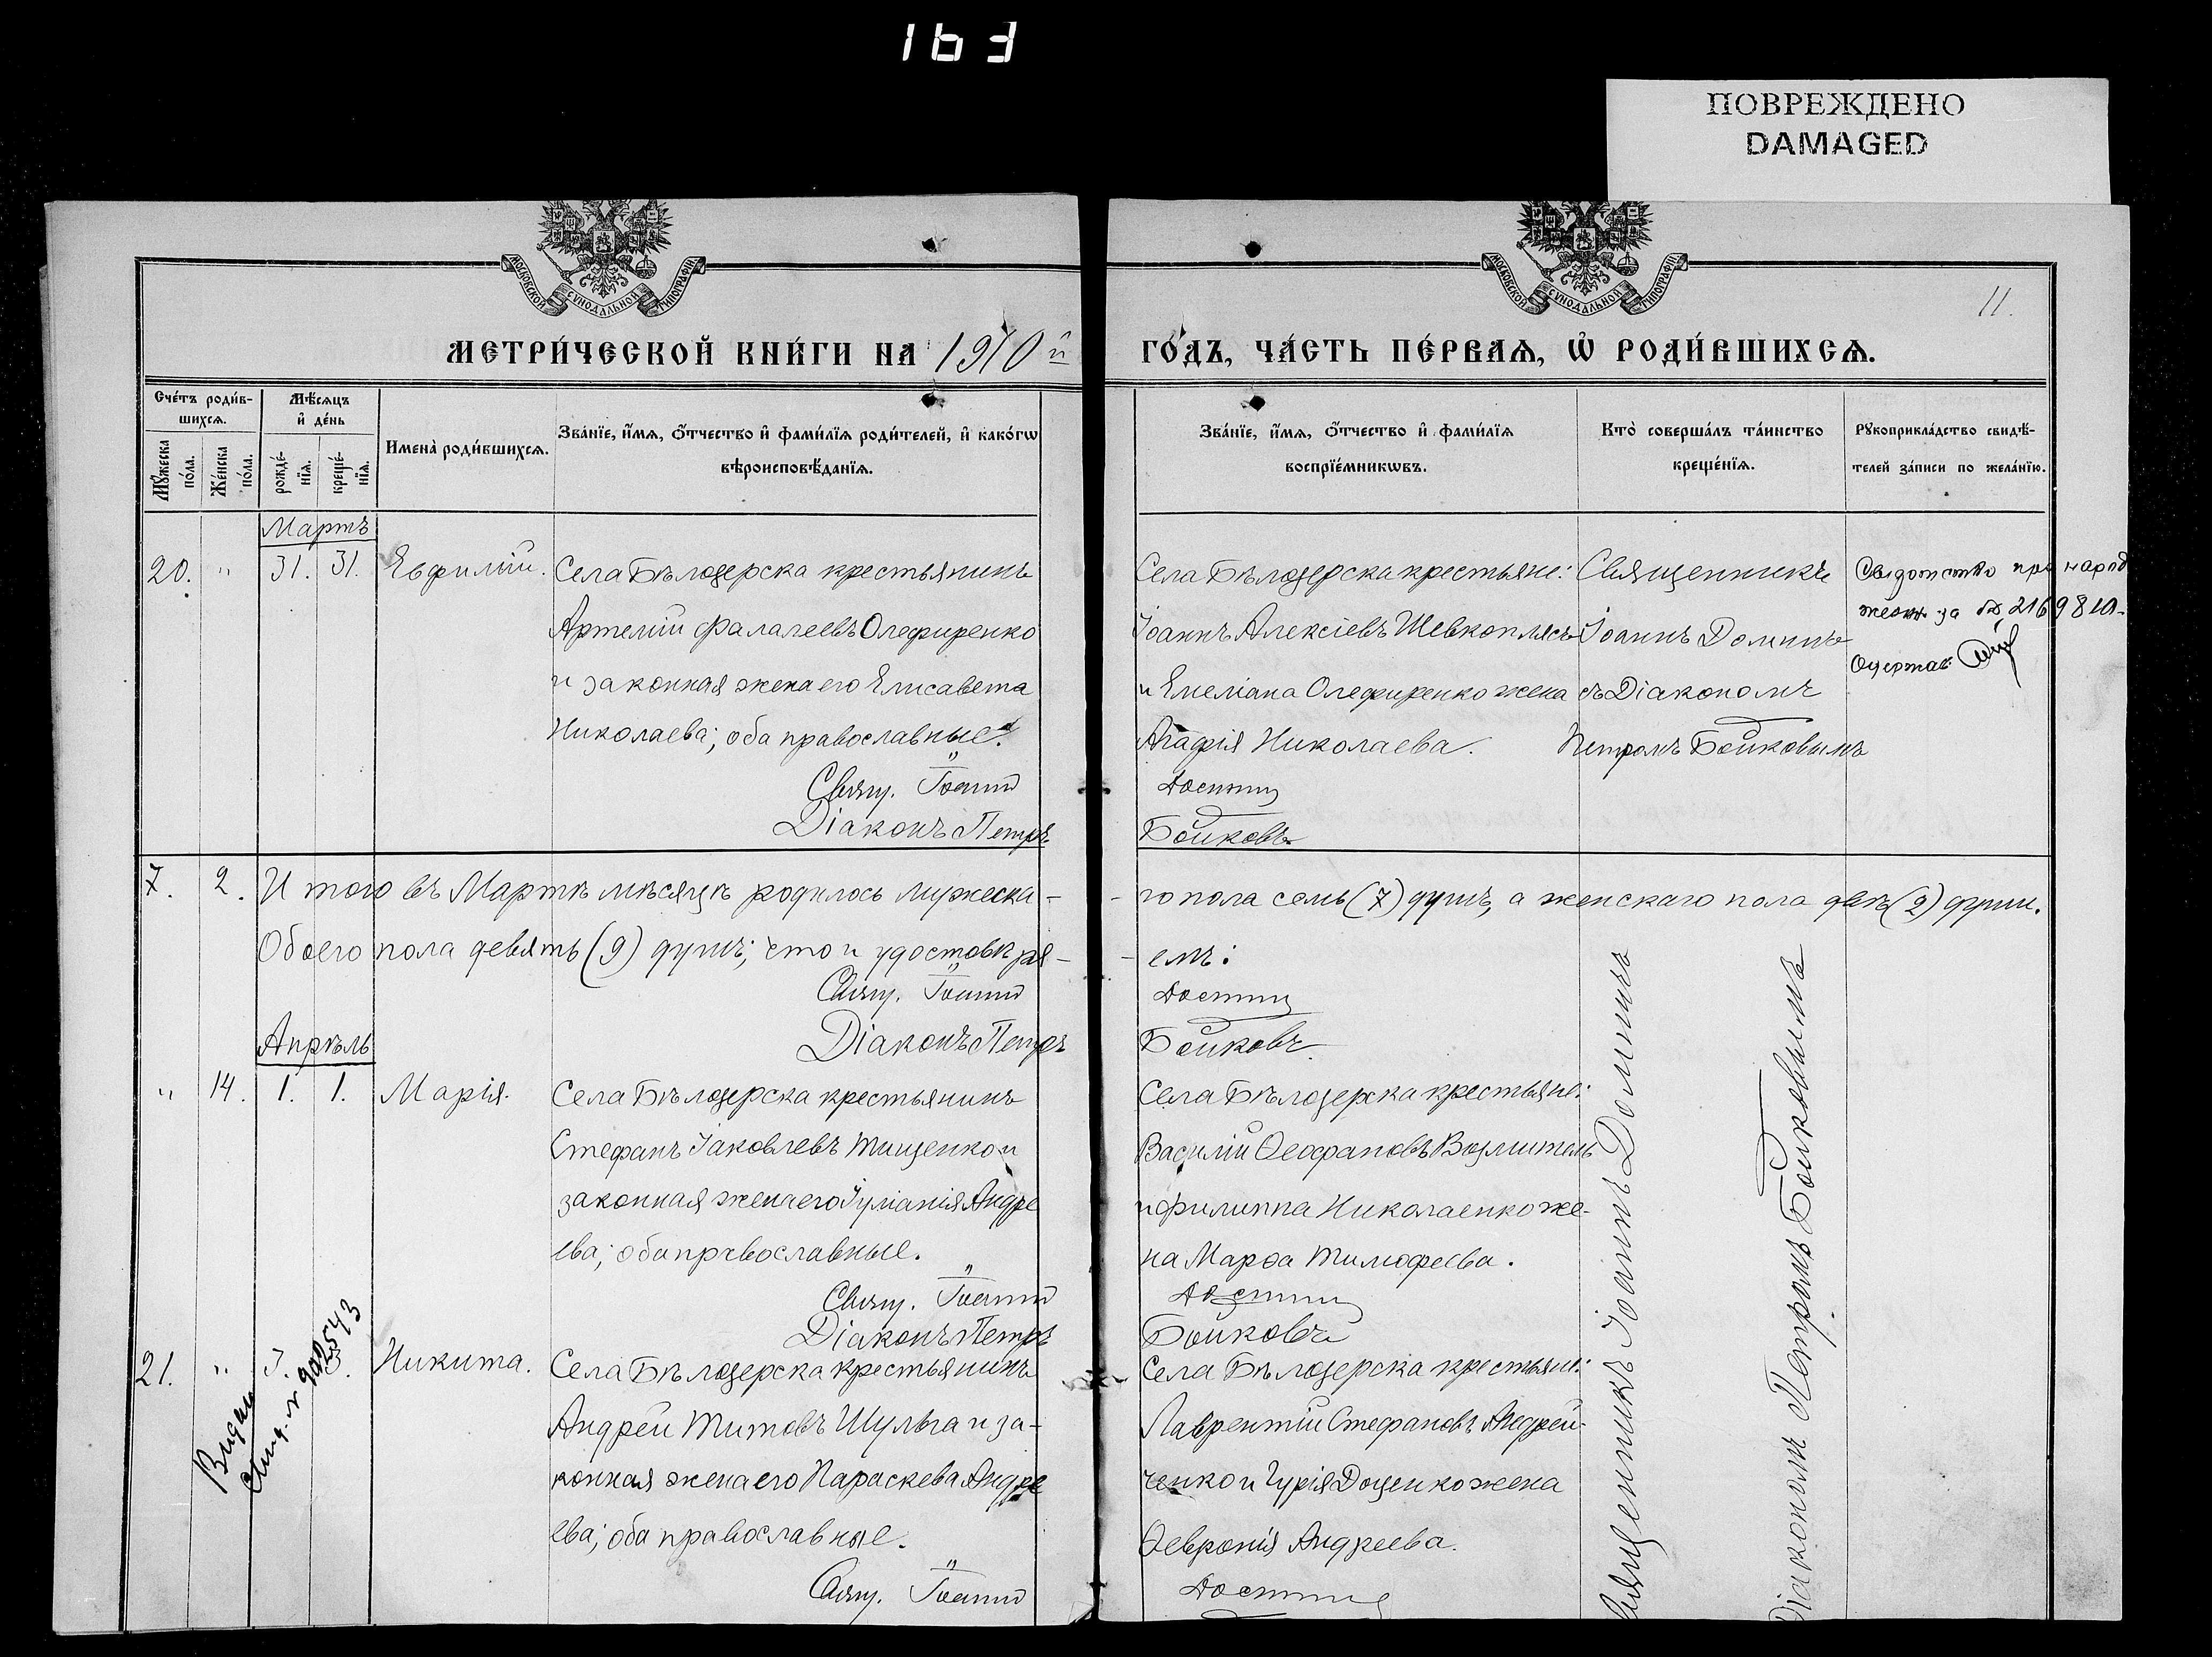 163
ПОВРЕЖДЕНО
DAMAGED
МОСКОВСКОЙ СѴНОДАЛЬНОЙ ТИПОГРАФІИ
МОСКОВСКОЙ СѴНОДАЛЬНОЙ ТИПОГРАФІИ
11.
МЕТРИ́ЧЕСКОЙ КНИ́ГИ НА 1910й
ГО́ДЪ, ЧА́СТЬ ПЕ́РВАѦ, Ѡ҆ РОДИ́ВШИХСѦ.
Сче́тъ роди́в-
шихся.
Мѣ́сяцъ
и҆ де́нь
Мꙋ́жеска
по́ла.
Же́нска
по́ла.
рожде́-
нїѧ.
креще́-
нїѧ.
Имена̀ роди́вшихсѧ.
Зва́нїе, и҆́мѧ, ѻ҆́тчество и҆ фами́лїѧ роди́телей, и҆ како́гѡ
вѣроисповѣ́данїѧ.
Зва́нїе, и҆́мѧ, ѻ҆́тчество и҆ фами́лїѧ
воспрїе́мникѡвъ.
Кто̀ соверша́лъ та́инство
креще́нїѧ.
Рꙋкоприкла́дство свидѣ́-
телей за́писи по жела́нїю.
Мартъ
20. " 31. 31. Евфимій. Села Бѣлозерска крестьянинъ
Артемій Фалалеевъ Олефиренко
и законная жена его Елисавета
Николаева; оба православные.
Свящ. Іоаннъ
Діаконъ Петръ
Села Бѣлозерска крестьяне:
Іоаннъ Алексіевъ Шевкоплясъ
и Емеліана Олефиренко жена
Агафія Николаева.
Бойковъ
Священникъ
Іоаннъ Доминъ
съ Діакономъ
Петромъ Бойковымъ
за № 21698
7. 2. И того въ Мартѣ мѣсяцѣ родилось мужеска-
-го пола семь (7) душъ, а женскаго пола двѣ (2) души.
Обоего пола девять (9) душъ; что и удостовѣря-
-емъ:
Свящ. Іоаннъ
Діаконъ Петръ
Бойковъ
Апрѣль
" 14. 1. 1. Марія. Села Бѣлозерска крестьянинъ
Стефанъ Іаковлевъ Тищенко и
законная жена его Іуліанія Андре
ева; оба православные.
Свящ. Іоаннъ
Діаконъ Петръ
Села Бѣлозерска крестьяне:
Василій Ѳеофановъ Возмитель
и Филиппа Николаенко же-
на Марѳа Тимофеева.
Бойковъ
21. " 3. 3. Никита. Села Бѣлозерска крестьянинъ
Андрей Титовъ Шульга и за-
конная жена его Параскева Андре
ева; оба православные.
Свящ. Іоаннъ
Села Бѣлозерска крестьяне:
Лаврентій Стефановъ Андрей-
ченко и Гурія Доценко жена
Ѳевронія Андреева.
Видан
Священникъ Іоаннъ Доминъ
Діакономъ Петромъ Бойковымъ